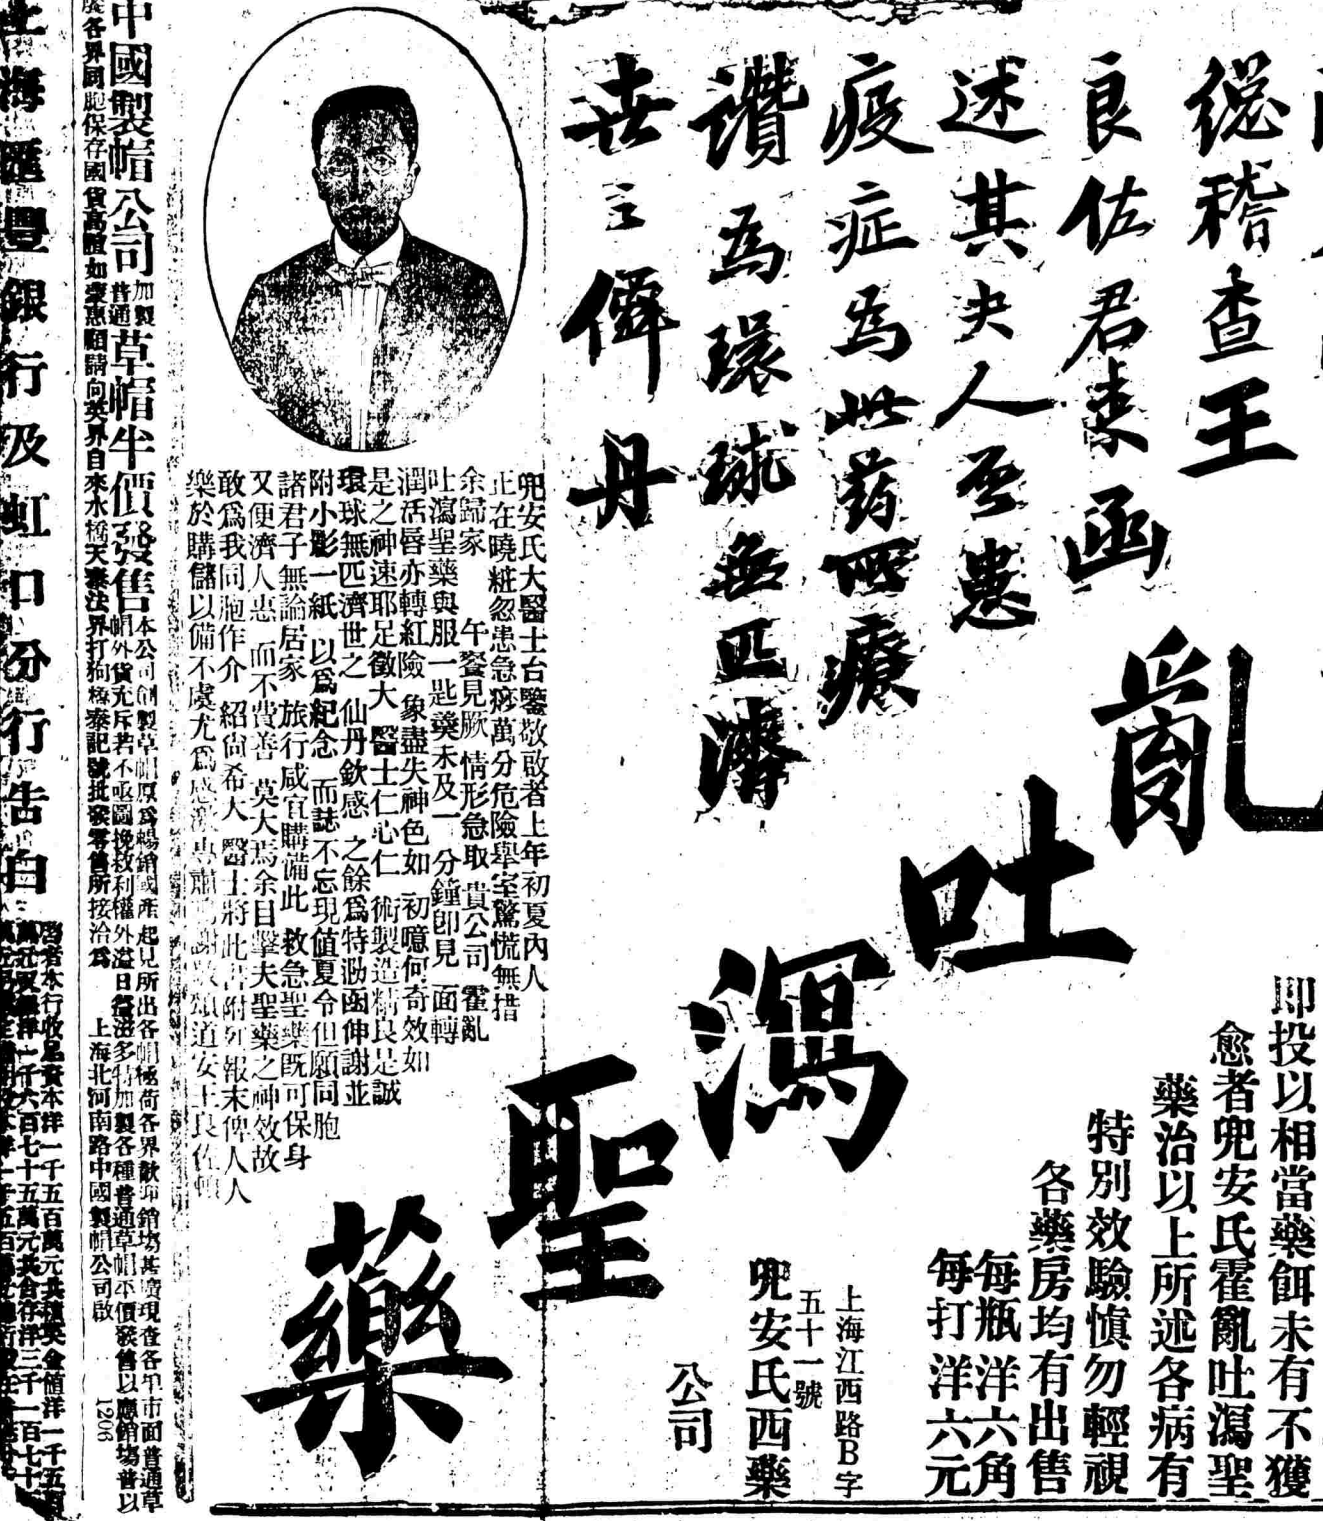 總稽查王
良佐君来函
述其夫人曾患
疫症為此药所療
讚為環球無匹濟
世之僊丹
亂
吐
瀉
聖
藥
即投以相當藥餌未有不獲
愈者兜安氏霍亂吐瀉聖
藥治以上所述各病有
特別效驗慎勿輕視
各藥房均有出售
每瓶洋六角
每打洋六元
上海江西路B字
五十一號
兜安氏西藥
公司
兜安氏大醫士台鑒敬啟者上年初夏內人
正在曉粧忽患急痧萬分危險舉室驚慌無措
余歸家 午餐見厥情形急取貴公司霍亂
吐瀉聖藥與服一匙羹未及一分鐘卽見面轉
潤活唇亦轉紅險象盡失神色如初噫何奇效如
是之神速耶足徵大醫士仁心仁術製造精良是誠
環球無匹濟世之仙丹欽感之餘爲特泐函伸謝並
附小影一紙以爲紀念而誌不忘現值夏令但願同胞
諸君子無論居家旅行咸宜購備此救急聖藥既可保身
又便濟人惠而不費善莫大焉余目擊夫聖藥之神效故
敢爲我同胞作介紹尙希大醫士將此書附列報末俾人人
樂於購儲以備不虞尤爲感
中國製帽公司加製普通草帽半價發售
本公司創製草帽原爲暢銷國產起見所出各帽極荷各界歡迎銷塲甚廣現查各界市面普通草
帽外貨充斥若不亟圖挽救利權外溢日益滋多特加製各種普通草帽平價發售以應銷塲普以
各界同胞保存國貨高誼如蒙惠顧請向英界自來水橋天泰法界打狗橋泰記號批發零售所接洽爲
上海北河南路中國製帽公司啟 1206
上海匯豐銀行及虹口分行告白
啓者本行收足資本洋一千五百萬元共積英金值洋一千五百
萬元又銀洋一千六百七十五萬元共合存洋三千一百七十